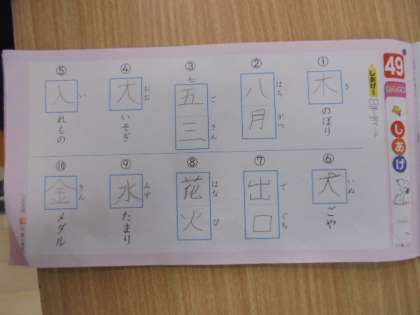 49
しあげ
① 木のぼり
き
② 八月
はちがつ
③ 七五三
ごさん
④ 大いそぎ
おお
⑤ 入れもの
い
⑥ 犬ごや
いぬ
⑦ 出口
でぐち
⑧ 花火
はなび
⑨ 水たまり
みず
⑩ 金メダル
きん